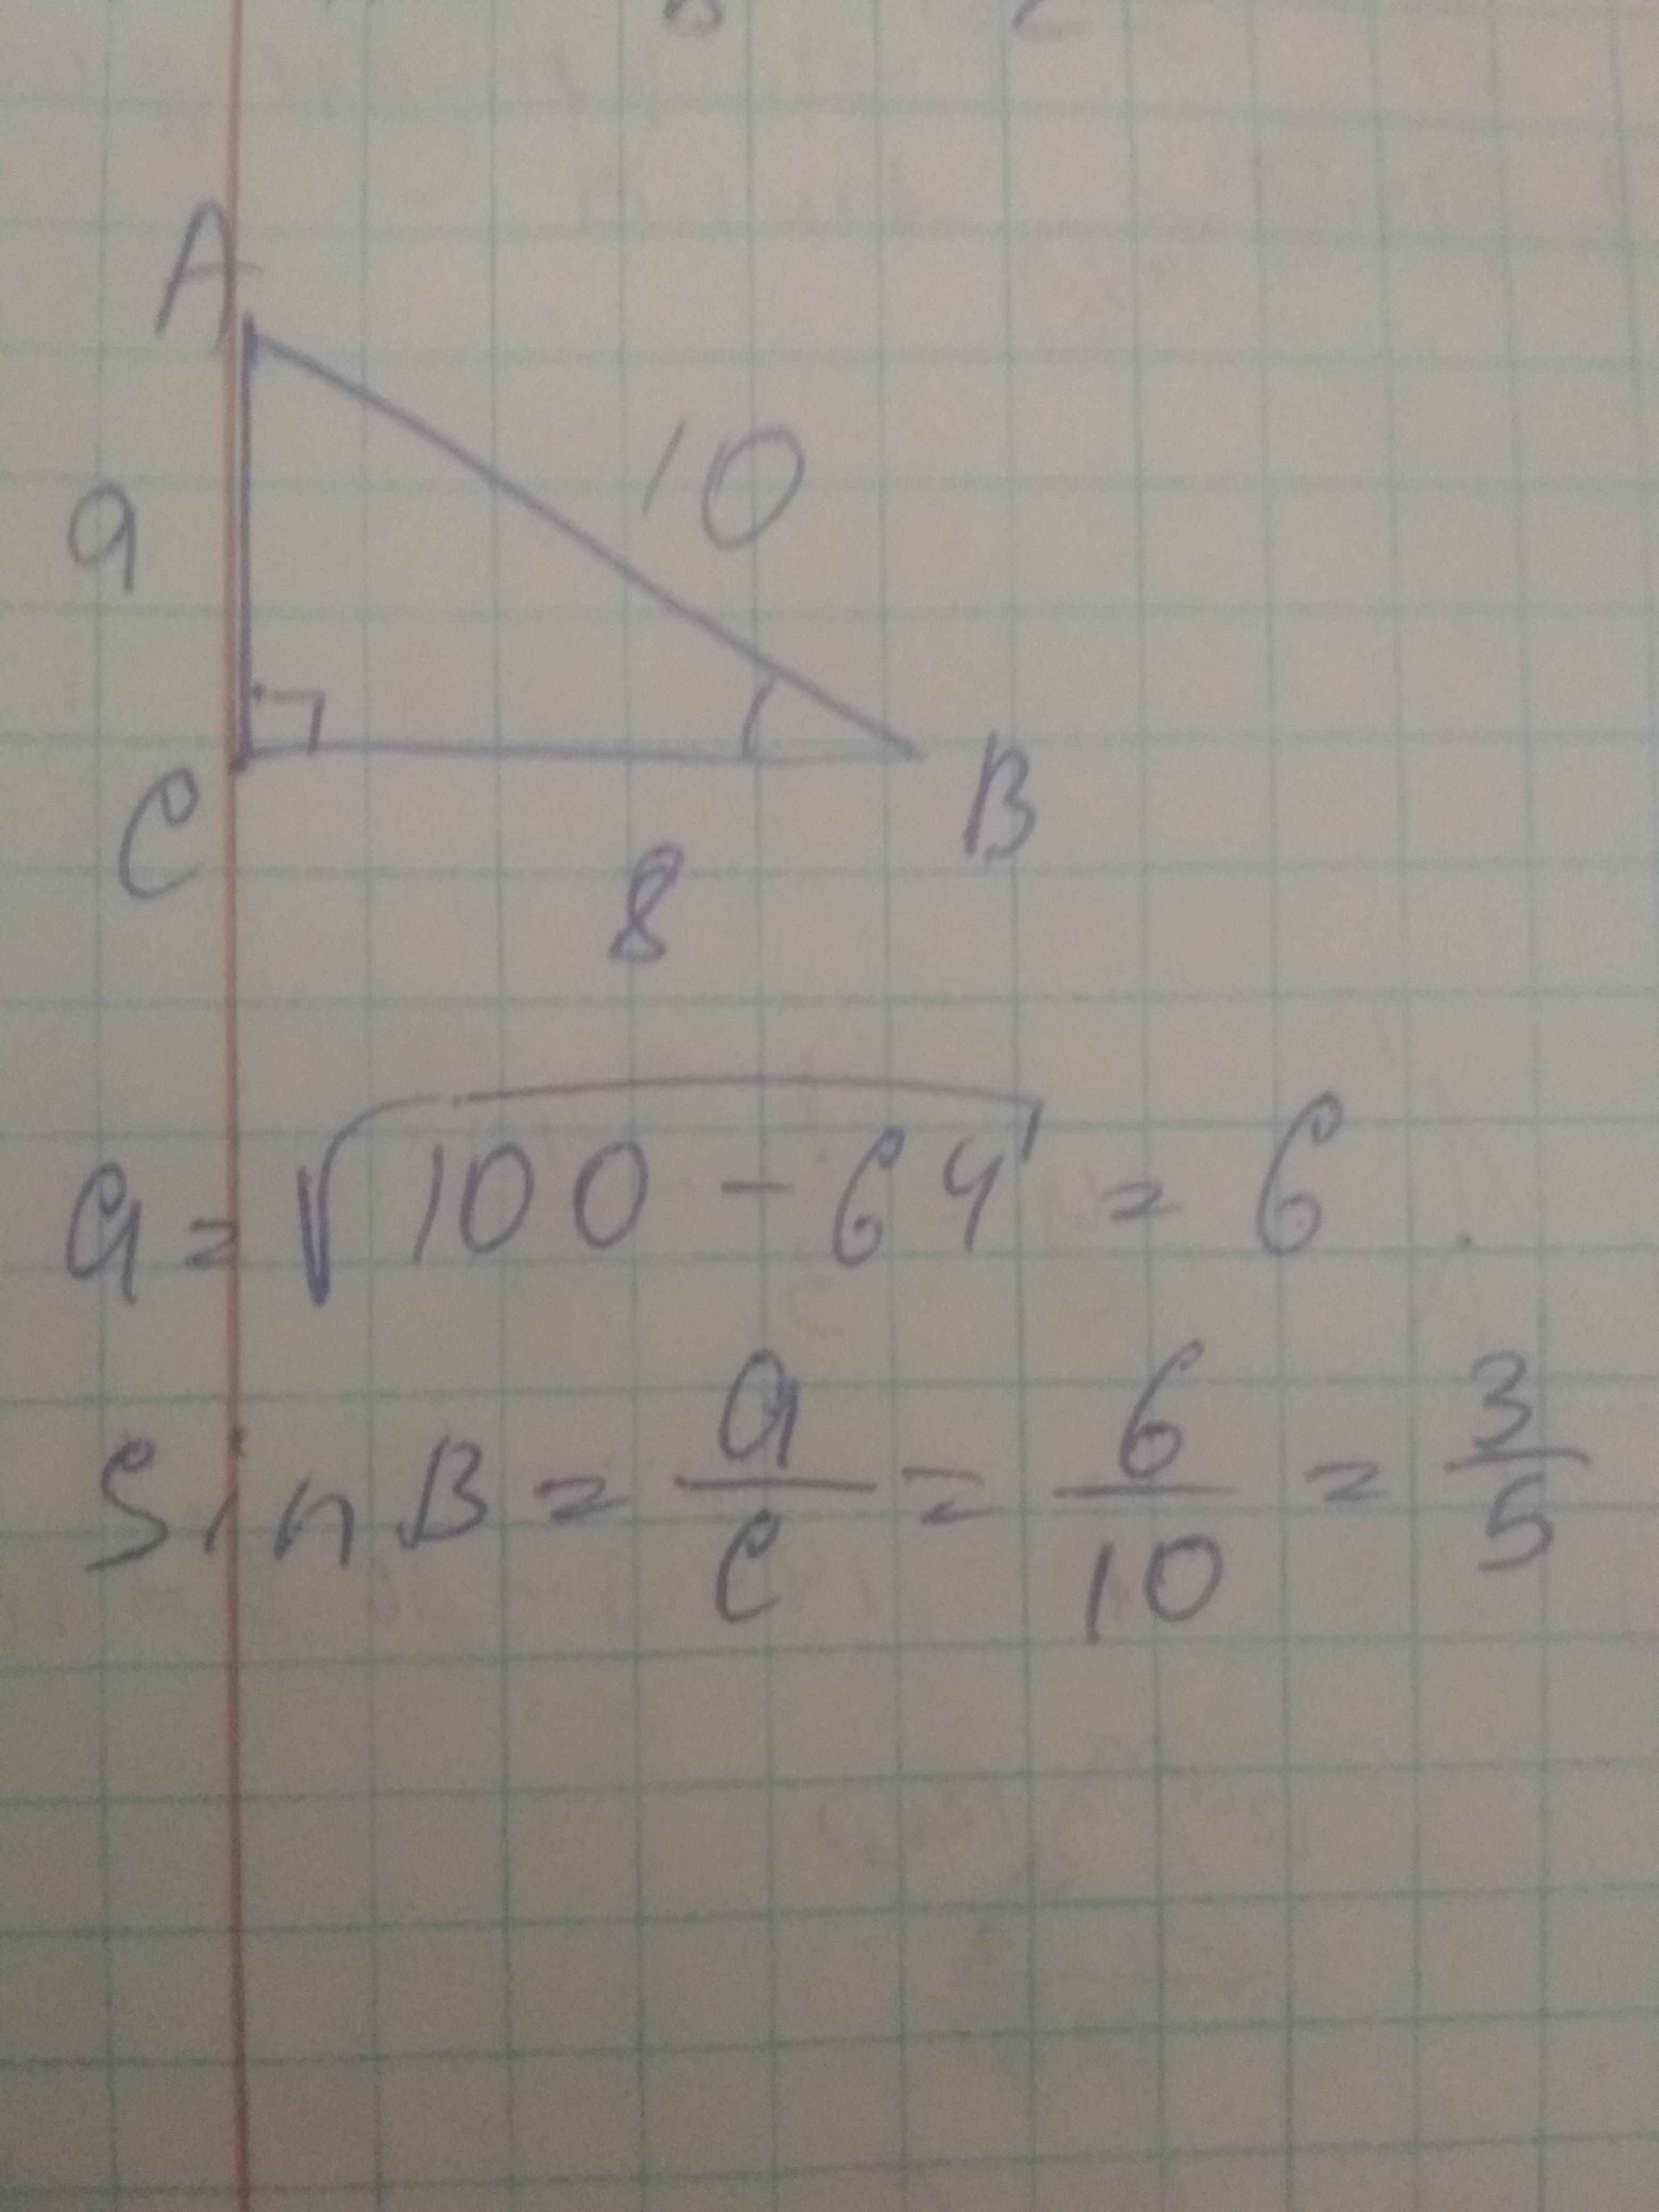 A
a
10
C
B
8
a = √100 - 64 = 6.
sin B = a/c = 6/10 = 3/5